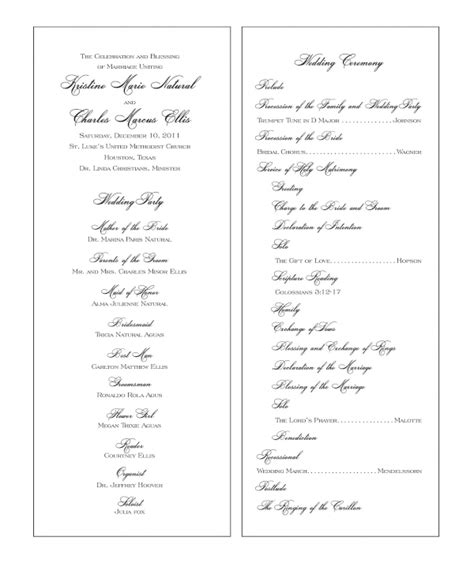 The Celebration and Blessing
of Marriage Uniting
Kristine Marie Natural
and
Charles Marcus Ellis
Saturday, December 10, 2011
St. Luke's United Methodist Church
Houston, Texas
Dr. Linda Christians, Minister
Wedding Party
Mother of the Bride
Dr. Marina Paris Natural
Parents of the Groom
Mr. and Mrs. Charles Minor Ellis
Maid of Honor
Alma Julienne Natural
Bridesmaid
Tricia Natural Aguas
Best Man
Carlton Matthew Ellis
Groomsman
Ronaldo Rola Agus
Flower Girl
Megan Trixie Aguas
Reader
Courtney Ellis
Organist
Dr. Jeffrey Hoover
Soloist
Julia fox
Wedding Ceremony
Prelude
Procession of the Family and Wedding Party
Trumpet Tune in D Major ............ Johnson
Procession of the Bride
Bridal Chorus ............ Wagner
Service of Holy Matrimony
Greeting
Charge to the Bride and Groom
Declaration of Intention
Solo
The Gift of Love ............ Hopson
Scripture Reading
Colossians 3:12-17
Homily
Exchange of Vows
Blessing and Exchange of Rings
Declaration of the Marriage
Blessing of the Marriage
Solo
The Lord's Prayer ............ Malotte
Benediction
Recessional
Wedding March ............ Mendelssohn
Postlude
The Ringing of the Carillon